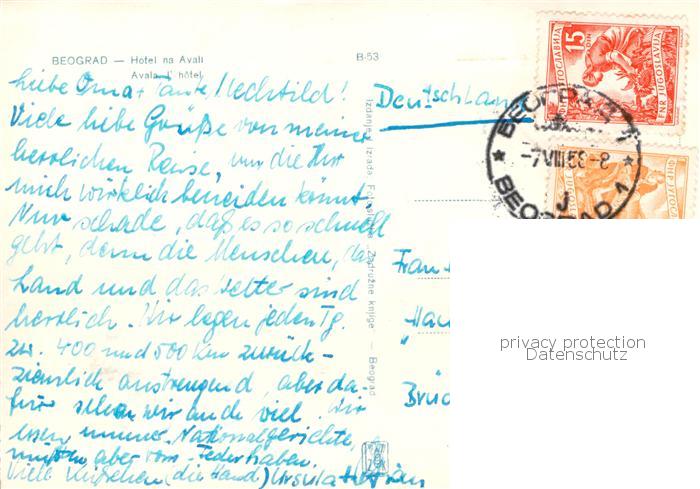 BEOGRAD — Hotel na Avali
Avala l' hôtel
B-53
Liebe Oma + Tante Mechtild!
Viele liebe Grüße von meiner
herrlichen Reise, um die Ihr
mich wirklich beneiden könnt.
Nur schade, daß es so schnell
geht, denn die Menschen, das
Land und das Wetter sind
herrlich. Wir legen jeden Tg.
zw. 400 und 500 km zurück -
ziemlich anstrengend, aber da-
für sehen wir auch viel. Wir
essen immer Nationalgerichte,
müssen aber vom Federhaben.
Viele Küßchen (die Hand) Ursula
Izdanje i izrada Zadružne knjige — Beograd
Deutschland
Frau
Brüc
15
ЈУГОСЛАВИЈА
FNR JUGOSLAVIJA
БЕОГРАД 1
-7.VIII.58-8
BEOGRAD 1
privacy protection
Datenschutz